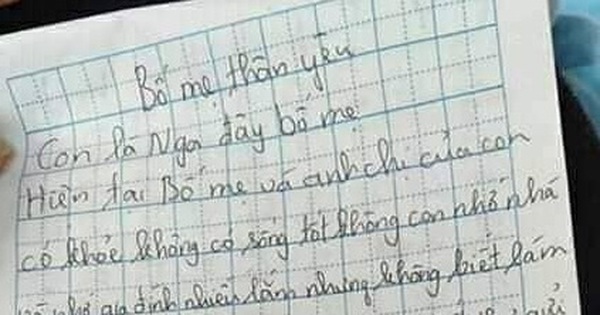 Bố mẹ thân yêu
Con là Nga đây bố mẹ
Hiện tại Bố mẹ và anh chị của con
có khỏe không có sống tốt không con nhớ nhà
nhớ gia đình nhiều lắm nhưng không biết làm